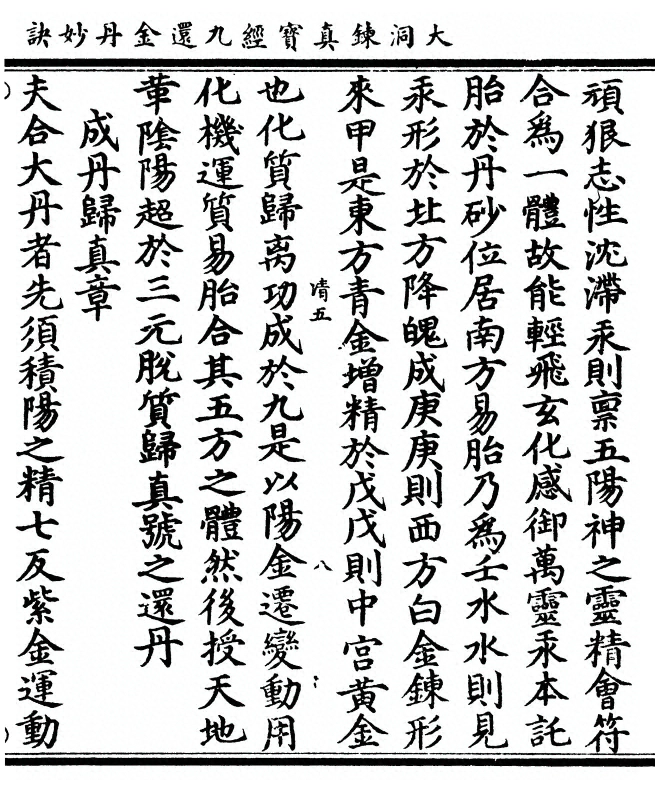 大洞鍊真寶經九還金丹妙訣
頑狠志性沈滯汞則稟五陽神之靈精會符
合爲一體故能輕飛玄化感御萬靈汞本託
胎於丹砂位居南方易胎乃爲壬水水則見
汞形於北方降魄成庚庚則西方白金鍊形
來甲是東方青金增精於戊戊則中宮黃金
清五
八
也化質歸离功成於九是以陽金遷變動用
化機運質易胎合其五方之體然後授天地
華陰陽超於三元脫質歸真號之還丹
成丹歸真章
夫合大丹者先須積陽之精七反紫金運動